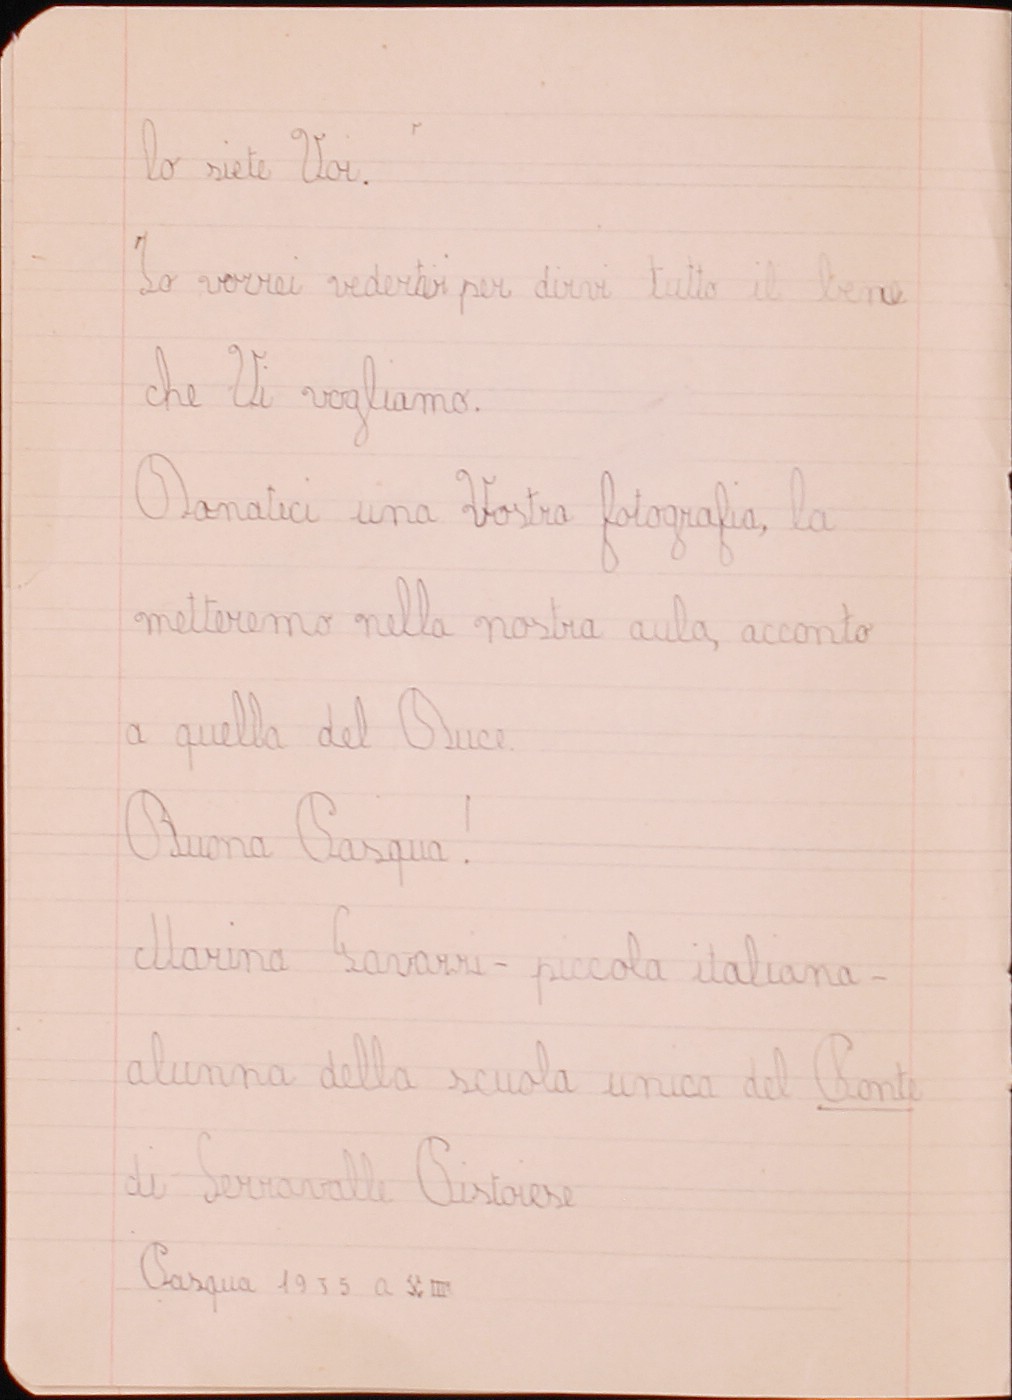 lo siete Voi.
Io vorrei vedervi per dirvi tutto il bene
che Vi vogliamo.
Donateci una Vostra fotografia, la
metteremo nella nostra aula, acconto
a quella del Duce.
Buona Pasqua!
Marina Gavarri - piccola italiana -
alunna della scuola unica del Ponte
di Serravalle Pistoiese
Pasqua 1935 a XIII